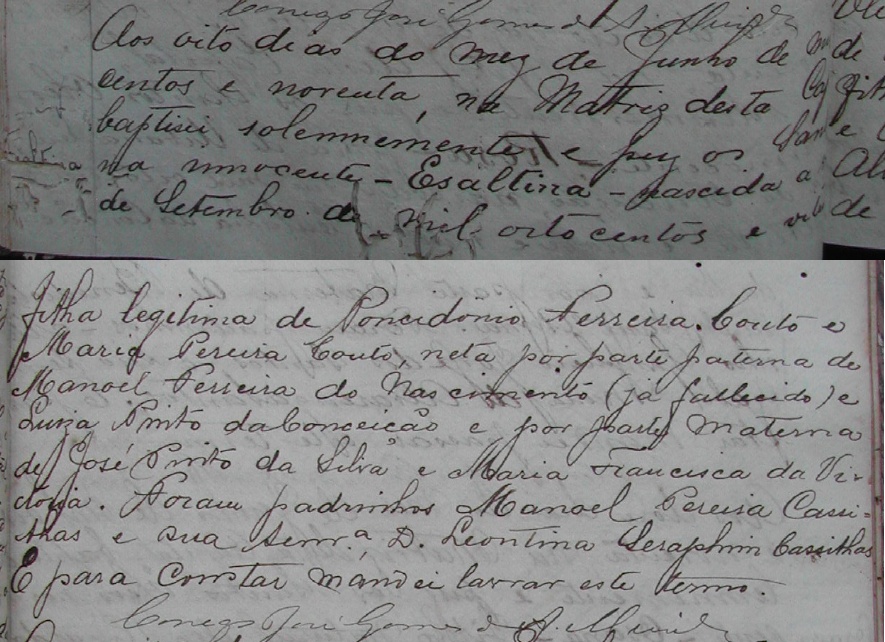 Conego José Gomes d' A. Almeida
Aos oito dias do mez de Junho de
centos e noventa, na Matriz desta
baptisei solemnemente e puz os San
na innocente - Esaltina - nascida a
de Setembro de mil oito centos e
filha legitima de Poncidonio Ferreira Couto e
Maria Pereira Couto, neta por parte paterna de
Manoel Ferreira do Nascimento (já fallecido) e
Luiza Pinto da Conceição e por parte materna
de José Pinto da Silva e Maria Francisca da Vi-
ctoria. Foram padrinhos Manoel Pereira Cassi-
lhas e sua Senrª. D. Leontina Seraphim Cassilhas
E para constar mandei lavrar este termo.
Conego José Gomes d' A. Almeida